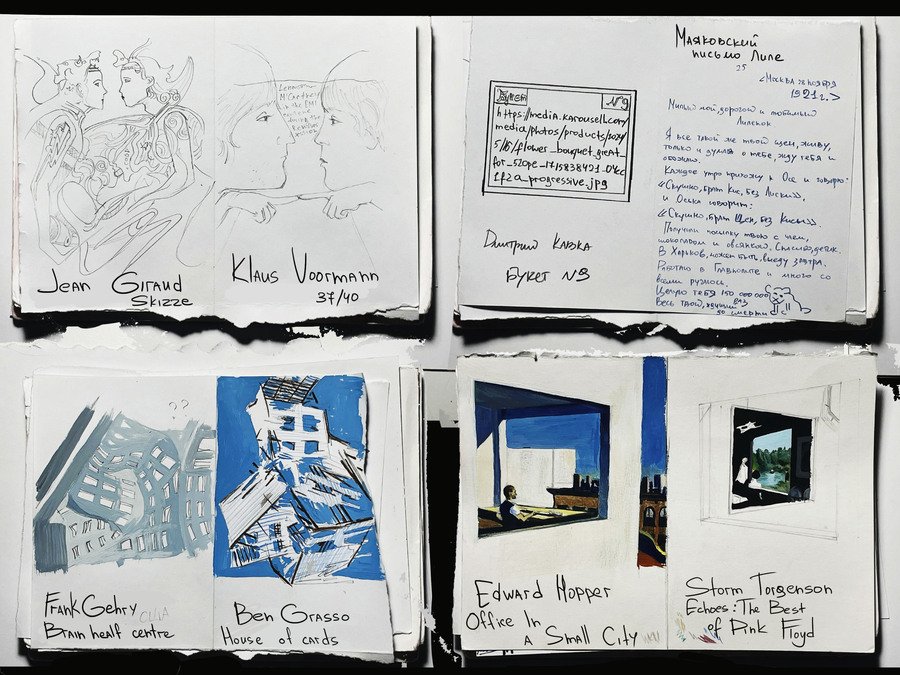 Jean Giraud
Skizze
McCartney
in the EMI
during the
Klaus Voormann
37/40
Букет №9
https://media.karousell.com/
media/photos/products/2024/
5/16/flower_bouquet_great_
_progressive.jpg
Дмитрий
Букет №9
Маяковский
письмо Лиле
25
<Москва 28 ноября
1921 г.>
Милый мой, дорогой и любимый
Лиленок
Я все такой же твой щен, живу,
только и думая о тебе жду тебя и
обожаю.
Каждое утро прихожу к Осе и говорю:
«Скушно, брат Кис, без Лиски»,
и Оська говорит:
«Скушно, брат Щен, без Кисы».
Получил посылку твою с чаем,
шоколадом и овсянкой. Спасибо, детик.
В Харьков, может быть, выеду завтра.
Работаю в Главполите и много со
всеми ругаюсь.
Целую тебя 150 000 000
раз
Весь твой,
до смерти
??
Frank Gehry
Brain healf centre
Ben Grasso
House of cards
Edward Hopper
Office In
a Small City
Storm Torgenson
Echoes: The Best
of Pink Floyd